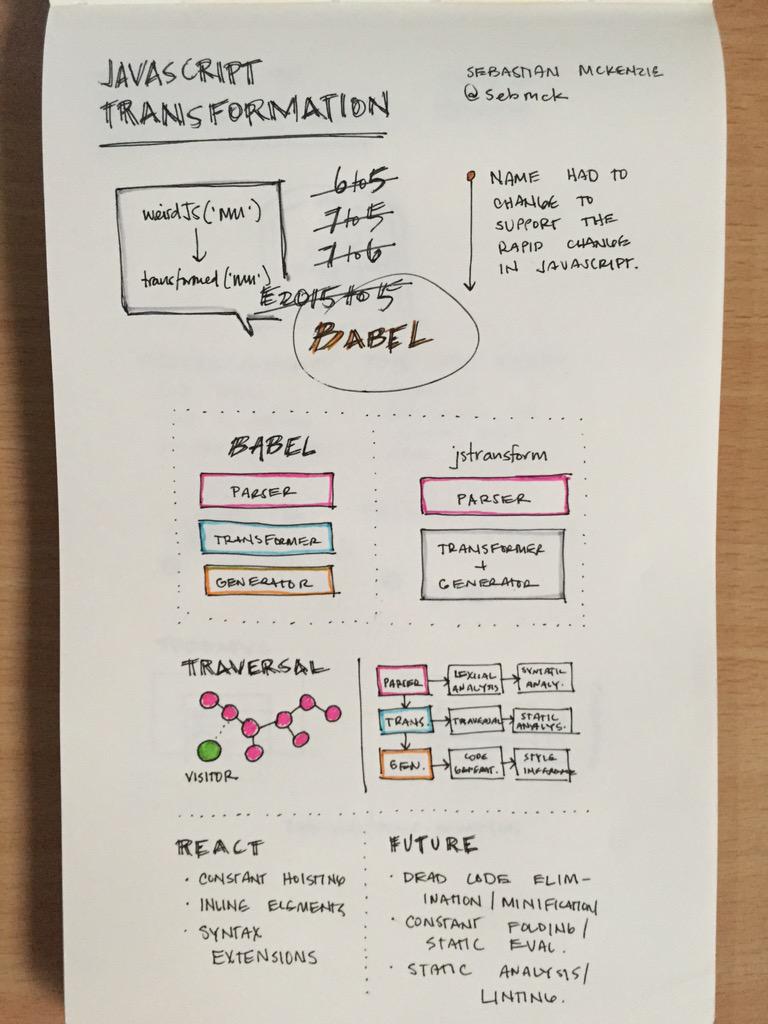 JAVASCRIPT
TRANSFORMATION
SEBASTIAN MCKENZIE
@sebmck
weirdJS('
transformed('
6to5
7to5
7to6
E2015to5
BABEL
NAME HAD TO
CHANGE TO
SUPPORT THE
RAPID CHANGE
IN JAVASCRIPT.
BABEL
PARSER
TRANSFORMER
GENERATOR
jstransform
PARSER
TRANSFORMER
+
GENERATOR
TRAVERSAL
VISITOR
PARSER
LEXICAL
ANALYSIS
SYNTATIC
ANALY.
TRANS.
TRAVERSAL
STATIC
ANALYS.
GEN.
CODE
GENERAT.
STYLE
INFERENCE
REACT
· CONSTANT HOISTING
· INLINE ELEMENTS
· SYNTAX
EXTENSIONS
FUTURE
· DEAD CODE ELIM-
INATION / MINIFICATION
· CONSTANT FOLDING /
STATIC EVAL.
· STATIC ANALYSIS /
LINTING.